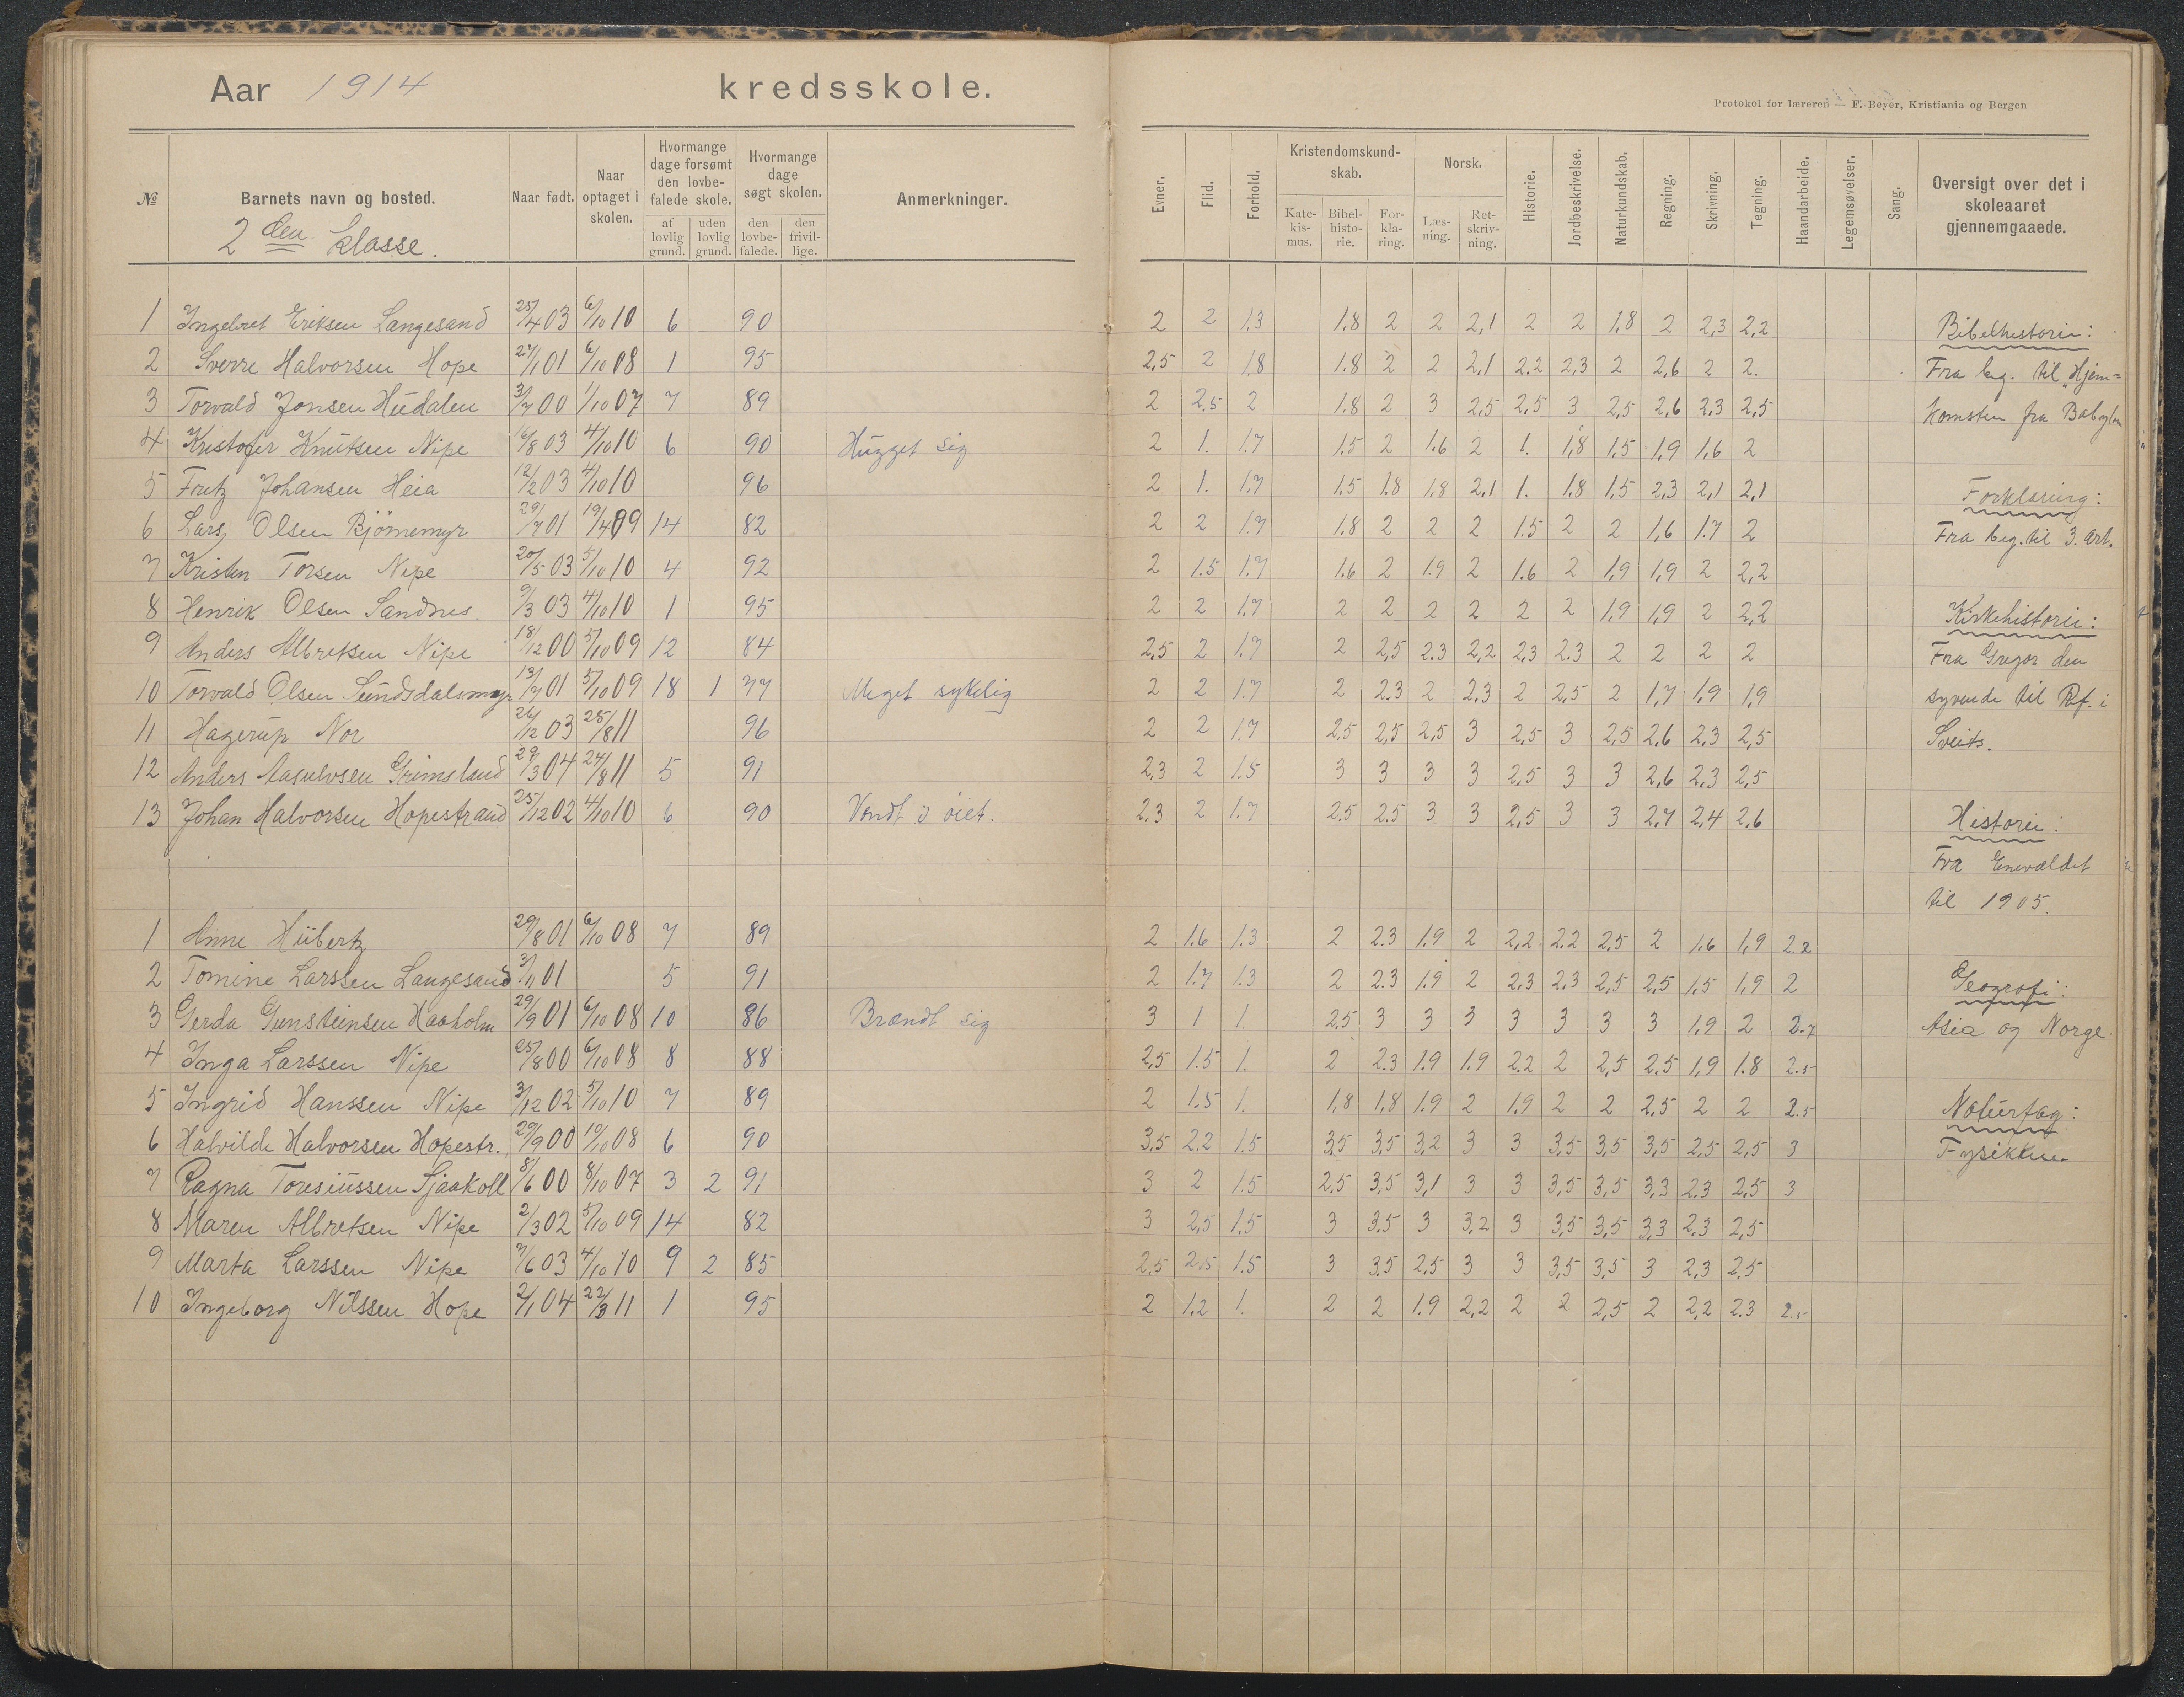 Aar 1914 kredsskole.
Protokol for læreren — F. Beyer, Kristiania og Bergen
№ Barnets navn og bosted. Naar født. Naar optaget i skolen. Hvormange dage forsømt den lovbefalede skole. af lovlig grund. uden lovlig grund. Hvormange dage søgt skolen. den lovbefalede. den frivillige. Anmerkninger.
Evner. Flid. Forhold. Kristendomskundskab. Katekismus. Bibelhistorie. Forklaring. Norsk. Læsning. Retskrivning. Historie. Jordbeskrivelse. Naturkundskab. Regning. Skrivning. Tegning. Haandarbeide. Legemsøvelser. Sang. Oversigt over det i skoleaaret gjennemgaaede.
2 den klasse.
1 Ingebret Eriksen Langesand 25/4 03 6/10 10 6 90 2 2 1.3 1.8 2 2 2,1 2 2 1,8 2 2,3 2,2 Bibelhistorie:
2 Sverre Halvorsen Hope 27/1 01 6/10 08 1 95 2,5 2 1.8 1.8 2 2 2.1 2.2 2,3 2 2,6 2 2. Fra beg. til "Hjem=
3 Torvald Jonsen Hüdalen 3/7 00 1/10 07 7 89 2 2.5 2 1.8 2 3 2,5 2,5 3 2,5 2,6 2.3 2,5 komsten fra Babylon
4 Kristofer Knutsen Nipe 16/8 03 4/10 10 6 90 Hugget sig 2 1. 1.7 1.5 2 1.6 2 1. 1,8 1.5 1,9 1,6 2
5 Fritz Johansen Heia 12/2 03 4/10 10 96 2 1. 1.7 1.5 1.8 1.8 2,1 1. 1.8 1,5 2,3 2,1 2,1 Forklaring:
6 Lars Olsen Björnemyr 29/7 01 19/4 09 14 82 2 2 1.7 1.8 2 2 2 1.5 2 2 1,6 1.7 2 Fra beg. til 3. art.
7 Kristen Torsen Nipe 20/5 03 5/10 10 4 92 2 1.5 1.7 1.6 2 1.9 2 1.6 2 1,9 1,9 2 2,2
8 Henrik Olsen Sandnes. 9/3 03 4/10 10 1 95 2 2 1.7 2 2 2 2 2 2 1,9 1,9 2 2,2 Kirkehistorie:
9 Anders Albretsen Nipe 18/12 00 5/10 09 12 84 2,5 2 1.7 2 2,5 2.3 2,2 2,3 2.3 2 2 2 2 Fra Gregor den
10 Torvald Olsen Sundsdalsmyr 13/7 01 5/10 09 18 1 77 Meget sykelig 2 2 1.7 2 2.3 2 2.3 2 2,5 2 1,7 1,9 1,9 syvende til Ref. i
11 Hagerup Nor 26/12 03 25/8 11 96 2 2 1.7 2.5 2,5 2,5 3 2,5 3 2,5 2,6 2,3 2,5 Sveits.
12 Anders Aasulvsen Grimsland 29/3 04 24/8 11 5 91 2,3 2 1.5 3 3 3 3 2,5 3 3 2,6 2,3 2,5
13 Johan Halvorsen Hopestrand 25/12 02 4/10 10 6 90 Vondt i öiet. 2.3 2 1.7 2.5 2.5 3 3 2,5 3 3 2,7 2,4 2,6 Historie:
Fra Enevældet
til 1905.
1 Anne Hübertz 29/8 01 6/10 08 7 89 2 1.6 1.3 2 2.3 1.9 2 2,2 2.2 2,5 2 1.6 1,9 2.2
2 Tomine Larssen Langesand 3/11 01 5 91 2 1.7 1.3 2 2.3 1.9 2 2,3 2.3 2,5 2,5 1,5 1,9 2 Geografi:
3 Gerda Gunsteinsen Haaholm 29/9 01 6/10 08 10 86 Brændt sig 3 1 1. 2,5 3 3 3 3 3 3 3 1,9 2 2.7 Asia og Norge.
4 Inga Larssen Nipe 25/8 00 6/10 08 8 88 2,5 1.5 1. 2 2.3 1.9 1.9 2.2 2 2,5 2.5 1,9 1.8 2.5
5 Ingrid Hanssen Nipe 3/12 02 5/10 10 7 89 2 1.5 1. 1,8 1,8 1.9 2 1.9 2 2 2.5 2 2 2.5 Naturfag:
6 Halvilde Halvorsen Hopestr. 29/9 00 10/10 08 6 90 3,5 2.2 1.5 3,5 3,5 3,2 3 3 3,5 3,5 3,5 2,5 2,5 3 Fysikken
7 Ragna Toresiussen Sjaakoll 8/6 00 8/10 07 3 2 91 3 2 1.5 2,5 3,5 3,1 3 3 3,5 3,5 3,3 2.3 2,5 3
8 Maren Albretsen Nipe 2/3 02 5/10 09 14 82 3 2,5 1.5 3 3.5 3 3,2 3 3,5 3,5 3,3 2,3 2,5
9 Marta Larssen Nipe 7/6 03 4/10 10 9 2 85 2.5 2.5 1.5 3 3.5 2,5 3 3 3,5 3,5 3 2,3 2,5
10 Ingeborg Nilssen Hope 2/1 04 22/3 11 1 95 2 1.2 1. 2 2 1.9 2,2 2 2 2,5 2 2,2 2.3 2.5